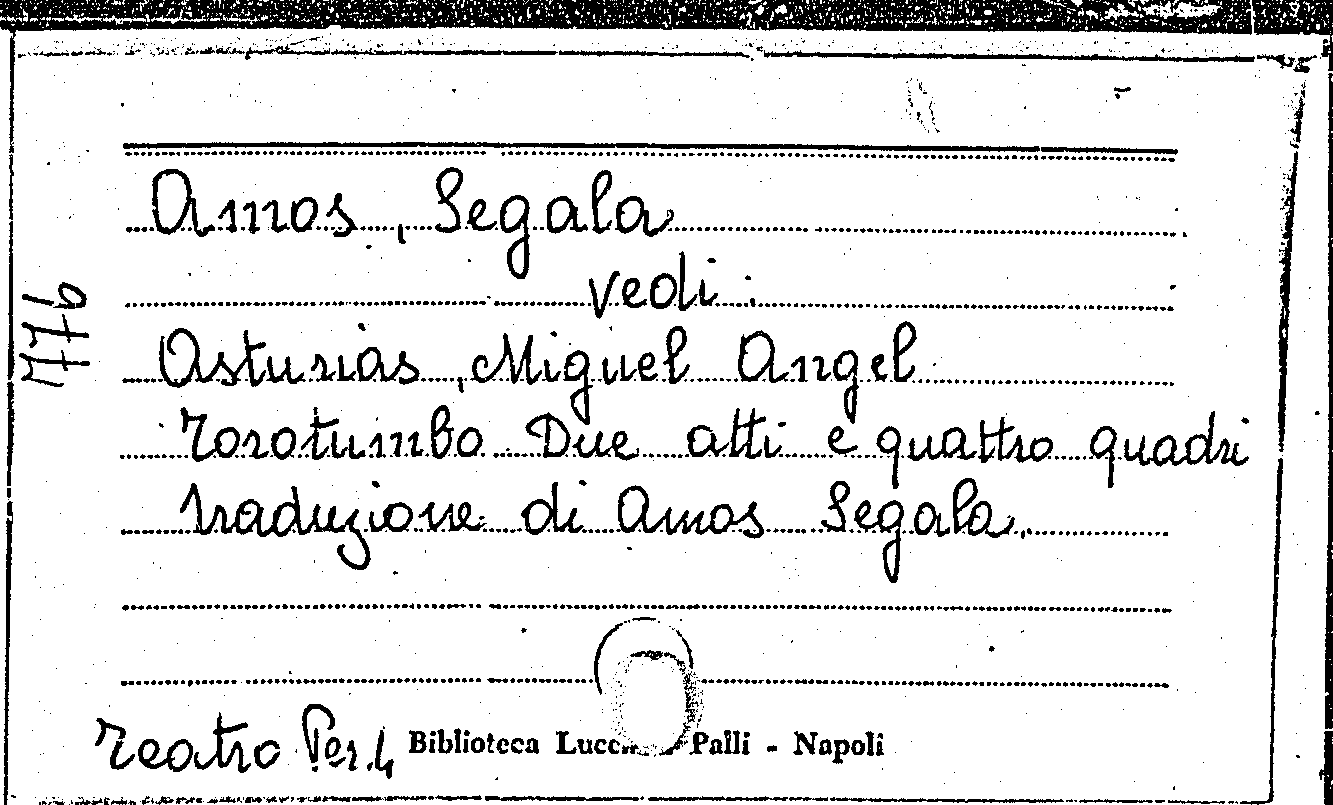 Amos, Segala
vedi:
Asturias, Miguel Angel
Torotumbo. Due atti e quattro quadri
traduzione di Amos Segala.
776
Teatro Per. 4 Biblioteca Palli - Napoli